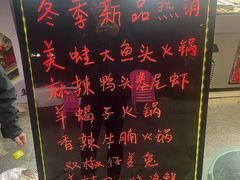 冬季新品热销
美蛙大鱼头火锅
麻辣鸭头基尾虾
羊蝎子火锅
香辣牛腩火锅
双椒仔姜兔